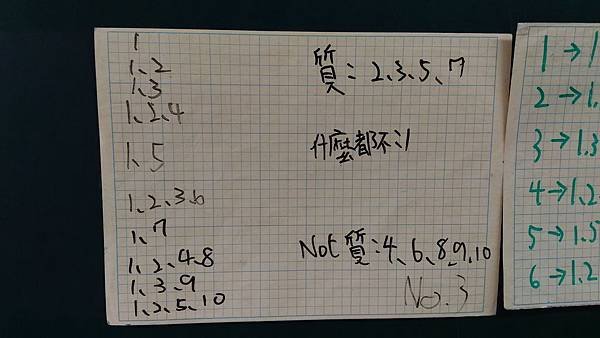 1
1、2
1、3
1、2、4
1、5
1、2、3、6
1、7
1、2、4、8
1、3、9
1、2、5、10
質：2、3、5、7
什麼都不：1
Not 質：4、6、8、9、10
No.3
1→1
2→1、
3→1.3
4→1.2
5→1.5
6→1.2